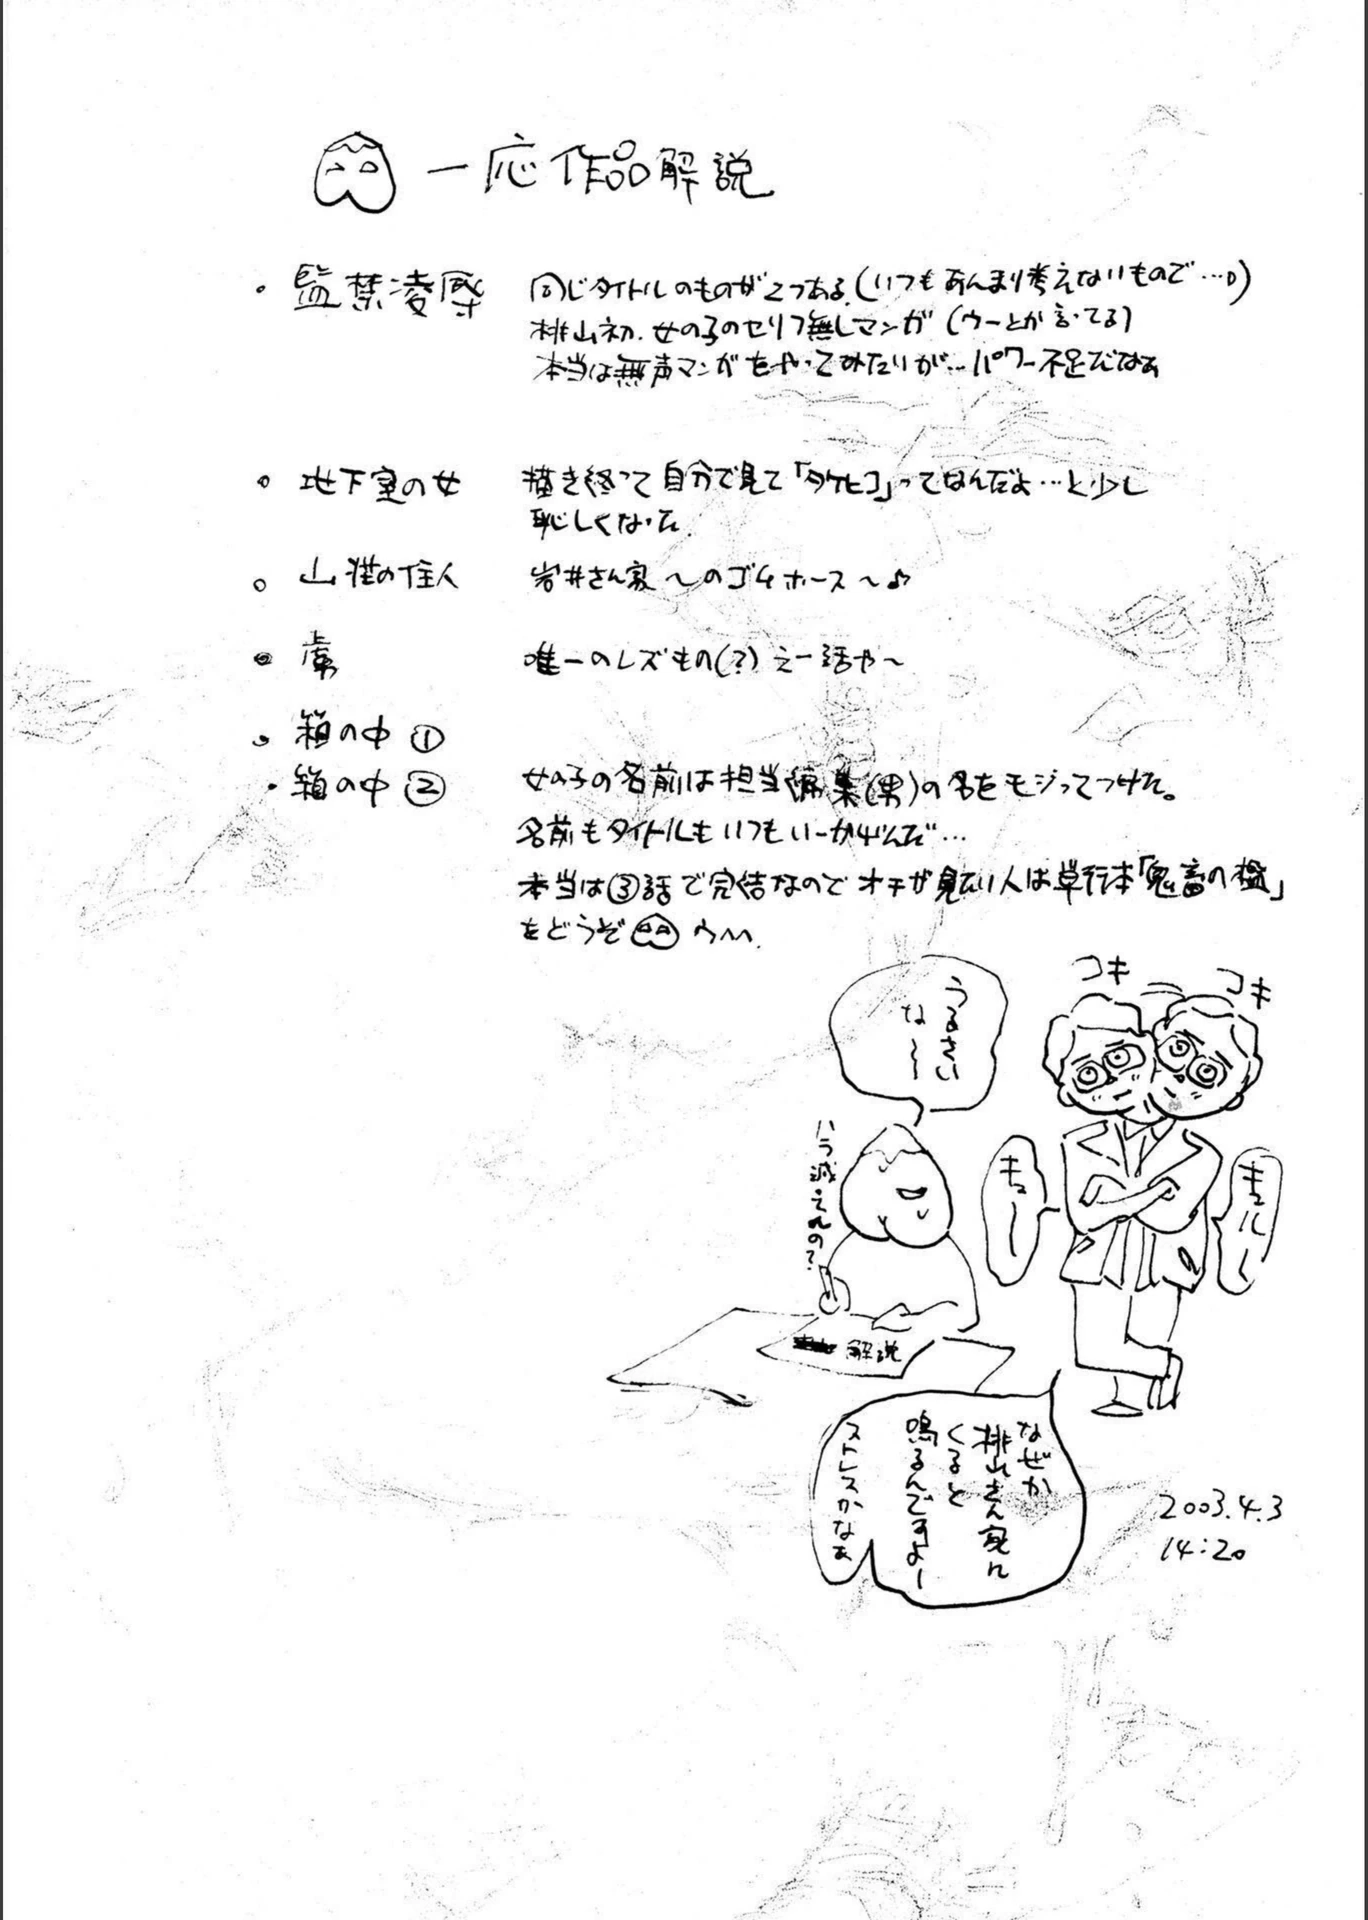 一応作品解説
・監禁凌辱 同じタイトルのものが2つある。(いつもあんまり考えないもので…。)
桃山初、女の子のセリフ無しマンガ(ウーとか言ってる)
本当は無声マンガをやってみたいが…パワー不足だなぁ
・地下室の女 描き終って自分で見て「タケヒコ」ってなんだよ…と少し
恥しくなった
・山荘の住人 岩井さん家〜のゴムホース〜♪
・虜 唯一のレズもの(?)えー話や〜
・箱の中①
・箱の中② 女の子の名前は担当編集(男)の名をモジってつけた。
名前もタイトルもいつもいーかげんだ…
本当は③話で完結なのでオチが見たい人は単行本「鬼畜の檻」
をどうぞ
コキ
コキ
うるさい
な〜〜
ハラ減ってんの?
キュ〜
キュル〜
解説
なぜか
桃山さん家に
くると
鳴るんですよー
ストレスかなぁ
2003.4.3
14:20